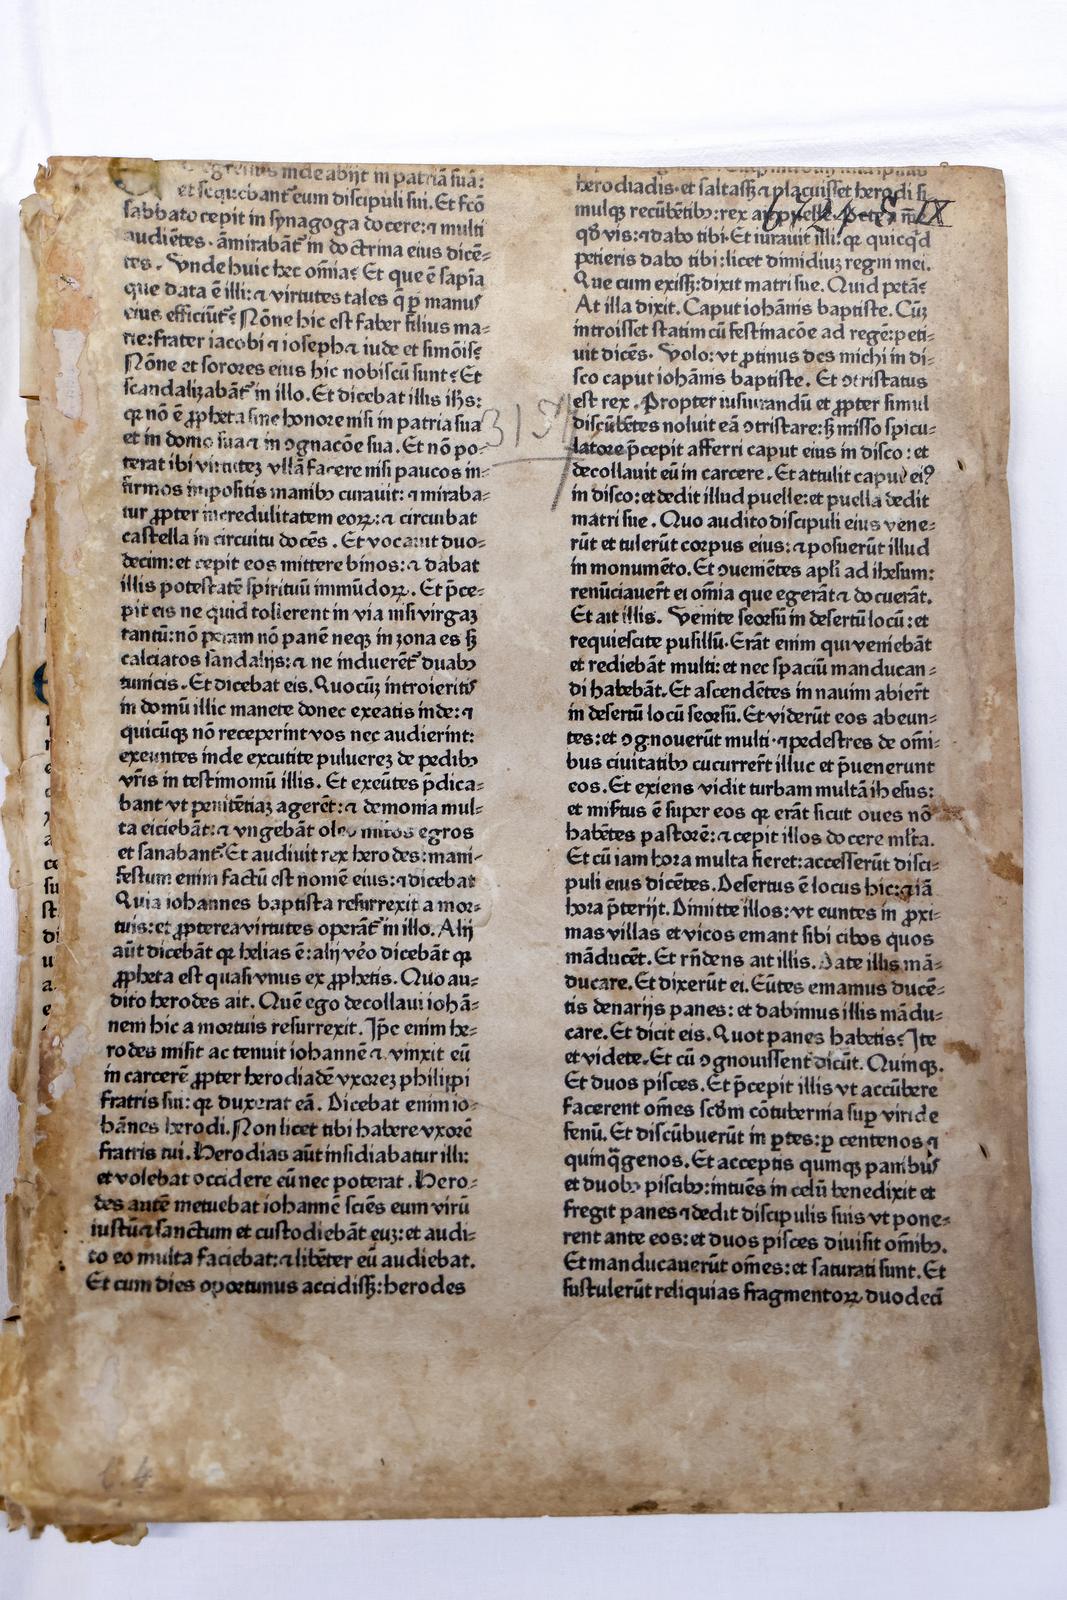 egressus inde abijt in patriā suā:
et sequebant̄ eum discipuli sui. Et fc̄o
sabbato cepit in synagoga docere: ⁊ multi
audiētes· āmirabāt̄ in doctrina eius dicē=
tes. Unde huic hec om̄ia? Et que ē sapīa
que data ē illi: ⁊ virtutes tales q̄ p̲ manus
eius efficiūt̄? Nōne hic est faber filius ma=
rie: frater iacobi ⁊ ioseph ⁊ iude et simōis?
Nōne et sorores eius hic nobiscū sunt? Et
scandalizabāt̄ in illo. Et dicebat illis ih̄s:
qꝛ nō ē ꝓpheta sine honore nisi in patria sua
et in domo sua ⁊ in ꝯgnacōe sua. Et nō po=
terat ibi virtuteꝫ ullā facere nisi paucos in=
firmos impositis manibꝰ curauit: ⁊ miraba=
tur ꝓpter incredulitatem eoꝝ: ⁊ circuibat
castella in circuitu docēs. Et vocauit duo=
decim: et cepit eos mittere binos: ⁊ dabat
illis potestatē spirituū immūdoꝝ. Et p̄ce=
pit eis ne quid tollerent in via nisi virgaꝫ
tantū: nō peram nō panē neqꝫ in zona es sꝫ
calciatos sandalijs: ⁊ ne induerēt̄ duabꝰ
tunicis. Et dicebat eis. Quocūqꝫ introieritis
in domū illic manete donec exeatis inde: ⁊
quicūqꝫ nō receperint vos nec audierint:
exeuntes inde excutite pulvereꝫ de pedibꝰ
vr̄is in testimoniū illis. Et exeūtes p̄dica=
bant vt penitētiaꝫ agerēt: ⁊ demonia mul=
ta eiciebāt: ⁊ vngebāt oleo mltos egros
et sanabant̄. Et audiuit rex herodes: mani=
festum enim factū est nomē eius: ⁊ dicebat
Quia iohannes baptista resurrexit a mor=
tuis: et ꝓpterea virtutes operāt̄ in illo. Alij
aūt dicebāt qꝛ helias ē: alij vēo dicebāt qꝛ
ꝓpheta est quasi vnus ex ꝓphetis. Quo au=
dito herodes ait. Quē ego decollaui iohā=
nem hic a mortuis resurrexit. Ip̄e enim he=
rodes misit ac tenuit iohannē ⁊ vinxit eū
in carcerē ꝓpter herodiadē vxoreꝫ philippi
fratris sui: qꝛ duxerat eā. Dicebat enim io=
hānes herodi. Non licet tibi habere vxorē
fratris tui. Herodias aūt insidiabatur illi:
et volebat occidere eū nec poterat. Hero=
des autē metuebat iohannē sciēs eum virū
iustū ⁊ sanctum et custodiebāt euꝫ: et audi=
to eo multa faciebat: ⁊ libēter eū audiebat.
Et cum dies oportunus accidissꝫ: herodes
herodiadis· et saltassꝫ ⁊ placuisset herodi si=
mulqꝫ recūbētibꝰ: rex ait puelle. Pete a me
qd̄ vis: ⁊ dabo tibi. Et iurauit illi: qꝛ quicq̄d
petieris dabo tibi: licet dimidiuꝫ regni mei.
Que cum exissꝫ: dixit matri sue. Quid petā?
At illa dixit. Caput iohānis baptiste. Cūqꝫ
introisset statim cū festinacōe ad regē: peti=
uit dicēs· Volo: vt ꝓtinus des michi in di=
sco caput iohānis baptiste. Et ꝯtristatus
est rex. Propter iusiurandū et ꝓpter simul
discūbētes noluit eā ꝯtristare: sꝫ misso spicu=
latore p̄cepit afferri caput eius in disco: et
decollauit eū in carcere. Et attulit caput eiꝰ
in disco: et dedit illud puelle: et puella dedit
matri sue. Quo audito discipuli eius vene=
rūt et tulerūt corpus eius: ⁊ posuerūt illud
in monumēto. Et ꝯueniētes apl̄i ad ihesum:
renūciauer̄t ei om̄ia que egerāt ⁊ docuerāt.
Et ait illis. Venite seorsū in desertū locū: et
requiescite pusillū. Erāt enim qui veniebāt
et rediebāt multi: et nec spaciū manducan=
di habebāt. Et ascendētes in nauim abier̄t
in desertū locū seorsū. Et viderūt eos abeun=
tes: et ꝯgnouerūt multi· ⁊ pedestres de om̄i=
bus ciuitatibꝰ cucurrer̄t illuc et p̄uenerunt
eos. Et exiens vidit turbam multā ihesus:
et mis̄tus ē super eos qꝛ erāt sicut oues nō
habētes pastorē: ⁊ cepit illos docere ml̄ta.
Et cū iam hora multa fieret: accesserūt disci=
puli eius dicētes. Desertus ē locus hic: ⁊ iā
hora p̄terijt. Dimitte illos: vt euntes in ꝓxi=
mas villas et vicos emant sibi cibos quos
māducēt. Et rn̄dens ait illis. Date illis mā=
ducare. Et dixerūt ei. Eūtes emamus ducē=
tis denarijs panes: et dabimus illis mādu=
care. Et dicit eis. Quot panes habetis? Ite
et videte. Et cū ꝯgnouissent dicūt. Quinqꝫ.
Et duos pisces. Et p̄cepit illis vt accūbere
facerent om̄es scd̄m cōtubernia sup̲ viride
fenū. Et discūbuerūt in p̲tes: p̲ centenos ⁊
quinq̄genos. Et acceptis quinqꝫ panibus
et duobꝰ piscibꝰ: intuēs in celū benedixit et
fregit panes ⁊ dedit discipulis suis vt pone=
rent ante eos: et duos pisces diuisit om̄ibꝰ.
Et manducauerūt om̄es: et saturati sunt. Et
sustulerūt reliquias fragmentoꝝ duodecī